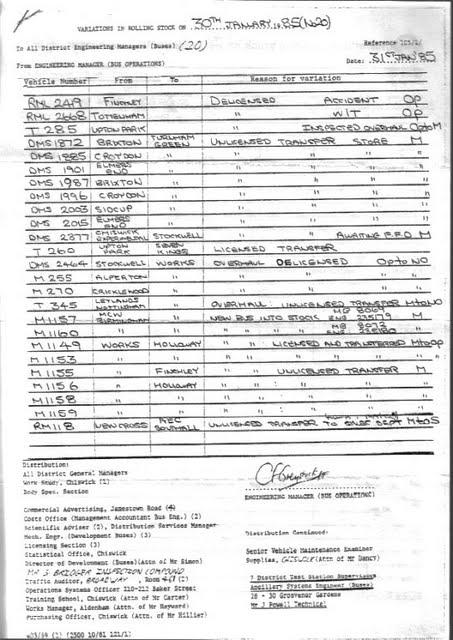 VARIATIONS IN ROLLING STOCK ON 30TH JANUARY 1985 (No20)
To All District Engineering Managers (Buses) (20)
Reference 103/1/
From ENGINEERING MANAGER (BUS OPERATIONS)
Date: 31ST JAN' 85
Vehicle Number From To Reason for variation
RML 2419 FINCHLEY DELICENSED ACCIDENT OP
RML 2668 TOTTENHAM " W/T OP
T 285 UPTON PARK " INSPECTED OVERHAUL OP to M
DMS 1872 BRIXTON TURNHAM GREEN UNLICENSED TRANSFER STORE M
DMS 1885 CROYDON " " " " "
DMS 1901 ELMERS END " " " " "
DMS 1987 BRIXTON " " " " "
DMS 1996 CROYDON " " " " "
DMS 2003 SIDCUP " " " " "
DMS 2015 ELMERS END " " " " "
DMS 2377 CHISWICK EXPERIMENTAL STOCKWELL " " AWAITING F.F.D M
T 260 UPTON PARK SEVEN KINGS LICENSED TRANSFER
DMS 2464 STOCKWELL WORKS OVERHAUL DELICENSED OP to NO
M 255 ALPERTON " " " "
M 270 CRICKLEWOOD " " " "
T 345 LEYLANDS NOTTINGHAM " OVERHAUL UNLICENSED TRANSFER M to NO
M1157 MCW BIRMINGHAM " NEW BUS INTO STOCK MB 8069 ENG 235179 M
M1160 " " " " " " MB 8072 ENG 235180 "
M1149 WORKS HOLLOWAY " " LICENSED AND TRANSFERRED M to OP
M1153 " " " " " " "
M1155 " FINCHLEY " " UNLICENSED TRANSFER M
M1156 " HOLLOWAY " " " " "
M1158 " " " " " " "
M1159 " " " " " " "
RM 118 NEW CROSS AEC SOUTHALL UNLICENSED TRANSFER TO SALES DEPT M to S
Distribution:
All District General Managers
Work Study, Chiswick (1)
Body Spec. Section
ENGINEERING MANAGER (BUS OPERATIONS)
Commercial Advertising, Jamestown Road (4)
Costs Office (Management Accountant Bus Eng.) (2)
Scientific Adviser (2), Distribution Services Manager
Mech. Engr. (Development Buses) (3)
Licensing Section (3)
Statistical Office, Chiswick
Director of Development (Buses)(Attn of Simon)
INSPECTION COMPOUND
Traffic Auditor, BROADWAY, Room
Operations Systems Officer 210-212 Baker Street
Training School, Chiswick (Attn of Mr Carter)
Works Manager, Aldenham (Attn of Mr Hayward)
Purchasing Officer, Chiswick (Attn of Mr Hillier)
Distribution Continued:
Senior Vehicle Maintenance Examiner
Supplies, CHISWICK (Attn of Mr Dancy)
7 District Unit Station Supervisors
Ancillary Systems Engineer (Buses)
28 - 30 Grosvenor Gardens
Mr J Powell Technical
(2500 10/81 121/1)